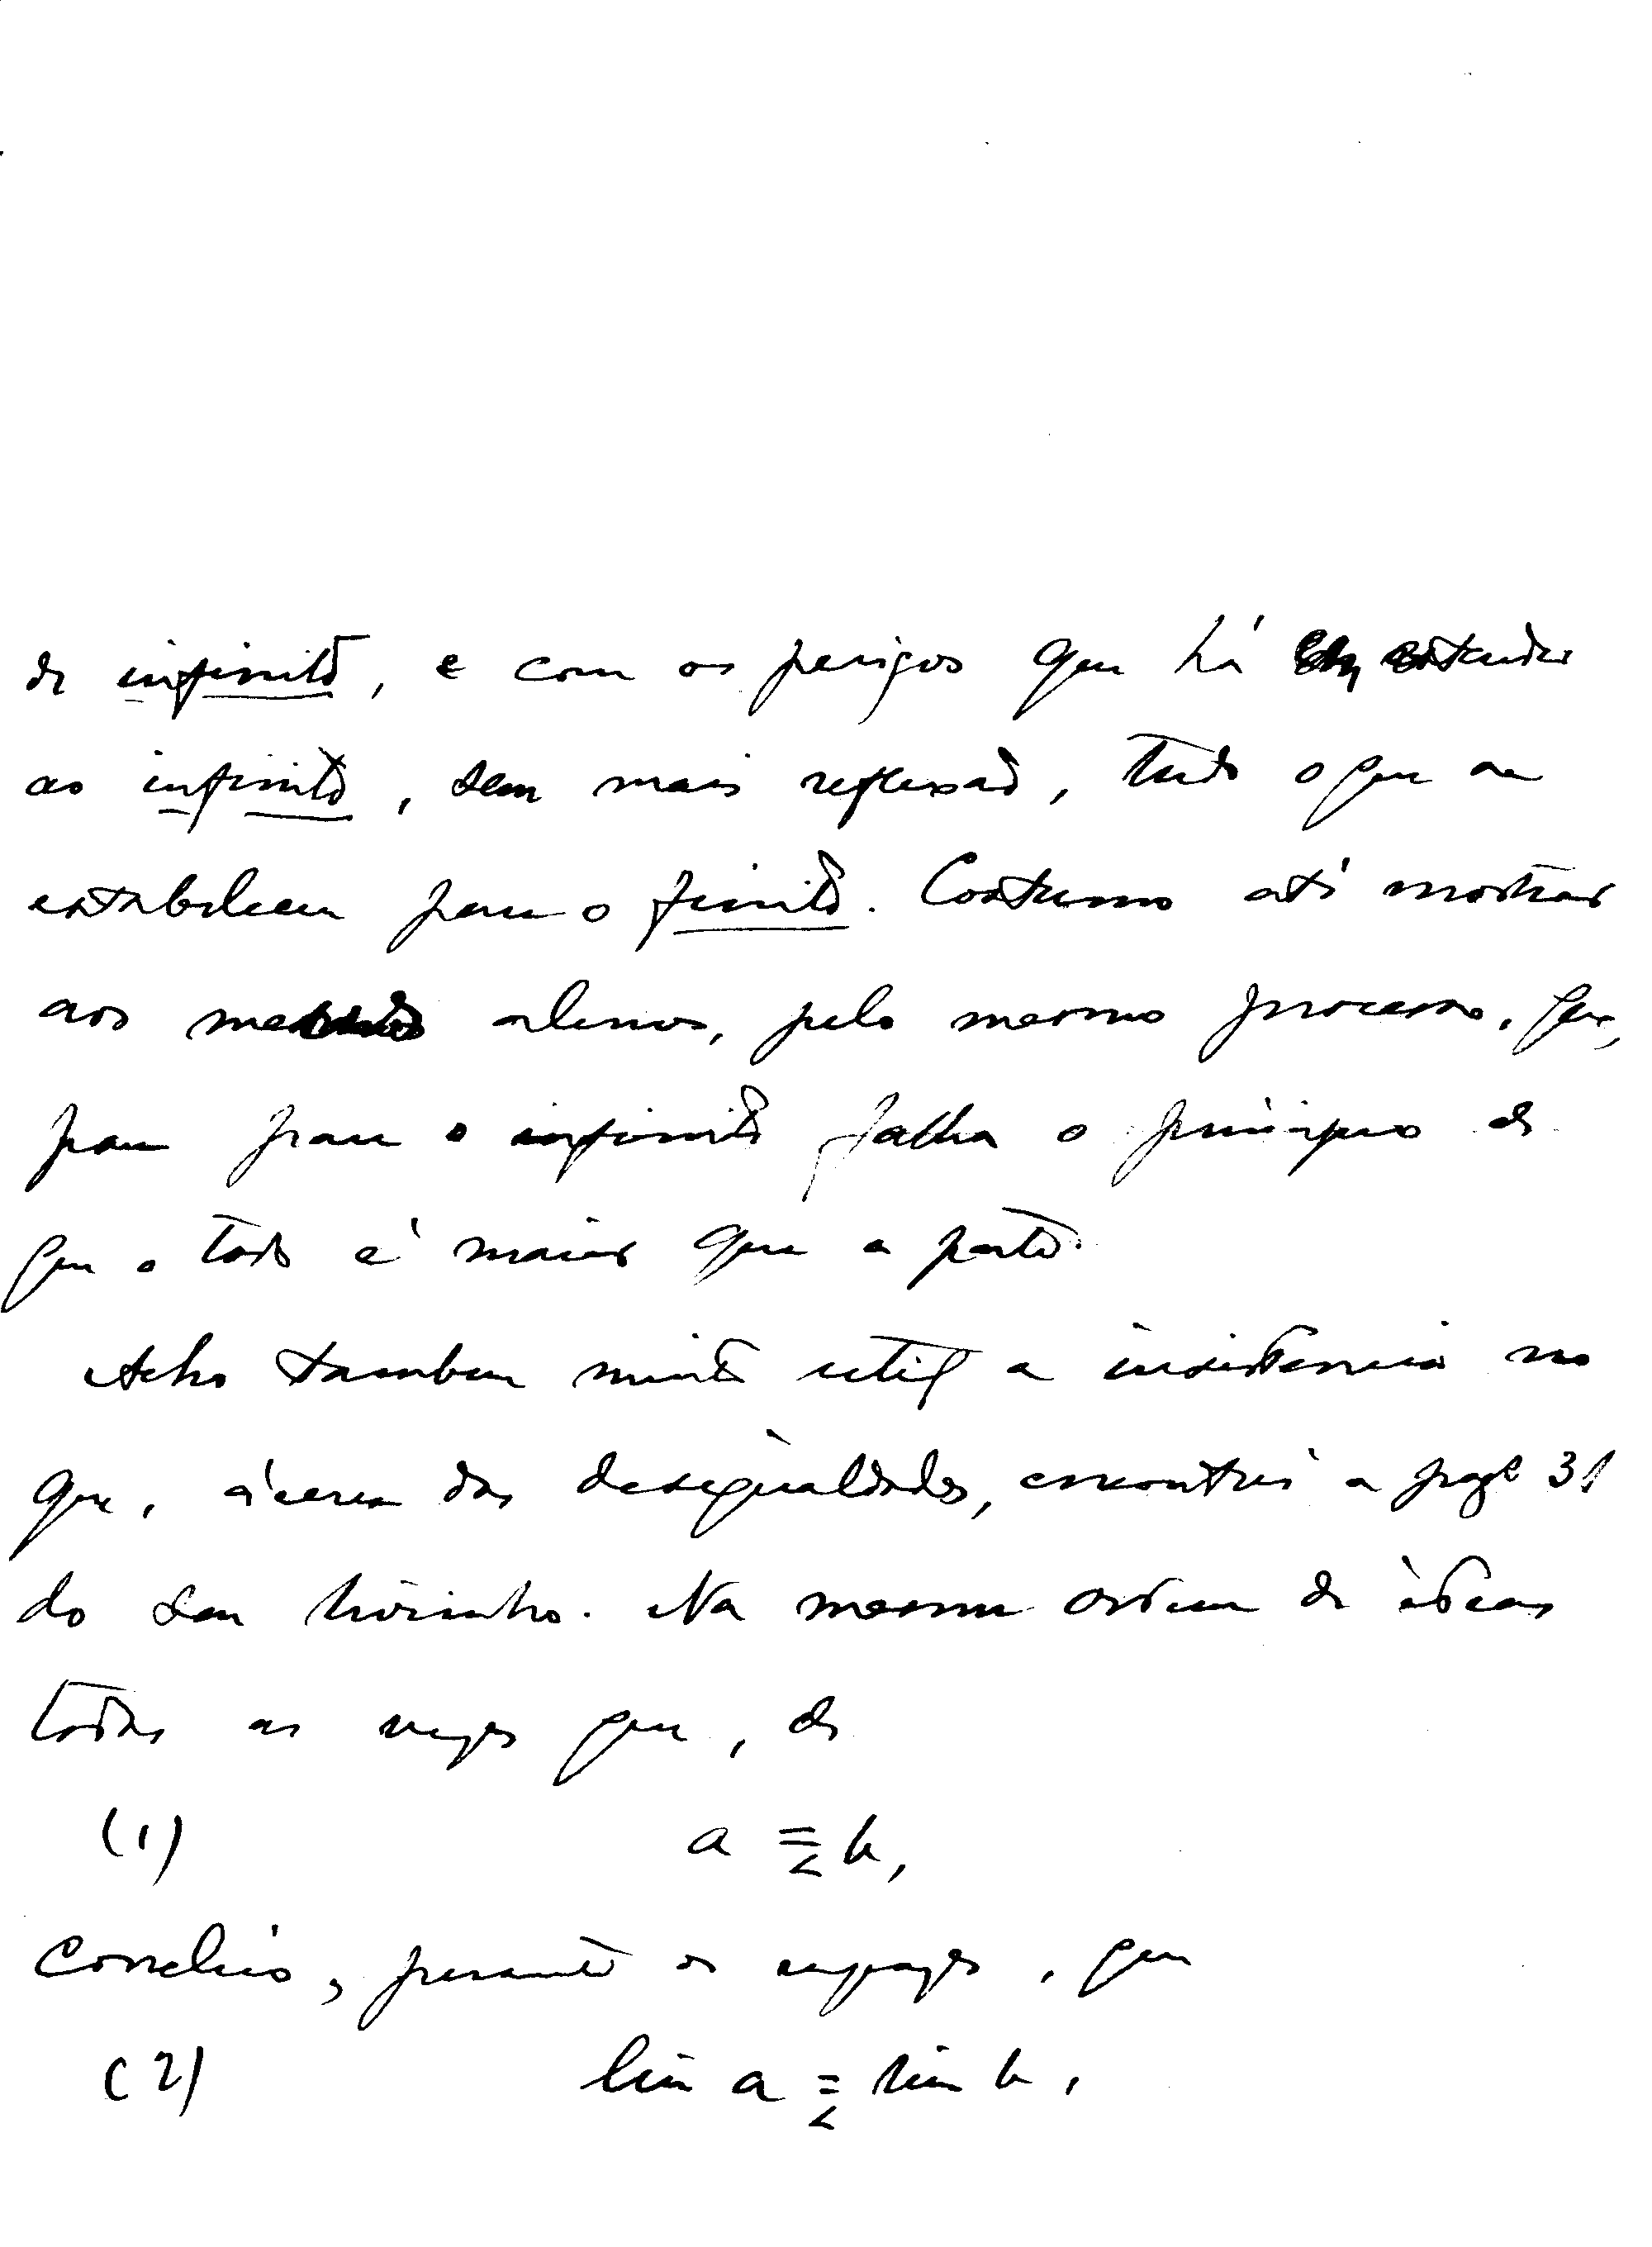 de infinito, e com os perigos que há em estender
ao infinito, sem mais reflexão, tudo o que se
estabelecem para o finito. Costumo até mostrar
aos alunos, pelo mesmo processo, que,
para o infinito falha o principio de
que o todo é maior que a parte.
Acho tambem muito util a insistencia no
que, ácerca das desigualdades, encontrei a pag. 31
do seu livrinho. Na mesma ordem de idéas
todas as vezes que, de
(1) a ≦ b,
concluio, perante os rapazes, que
(2) lim a ≦ lim b,